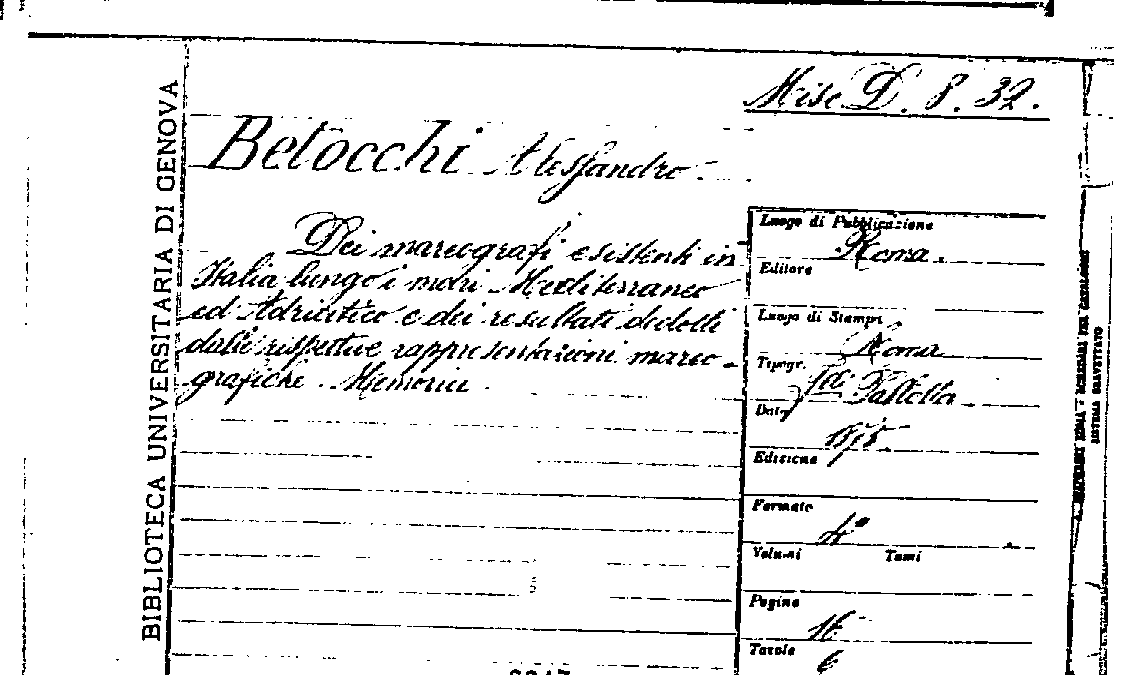 Misc D. 8. 32.
BIBLIOTECA UNIVERSITARIA DI GENOVA
Betocchi Alessandro
Dei mareografi esistenti in
Italia lungo i mari Mediterraneo
ed Adriatico e dei resultati dedotti
dalle rispettive rappresentazioni mareo-
grafiche. Memoria.
Luogo di Pubblicazione
Roma.
Editore
Luogo di Stampa
Roma
Tipogr.
Data
Edizione
Formato
4°
Volumi Tomi
Pagine
Tavole
6
SISTEMA BREVETTATO